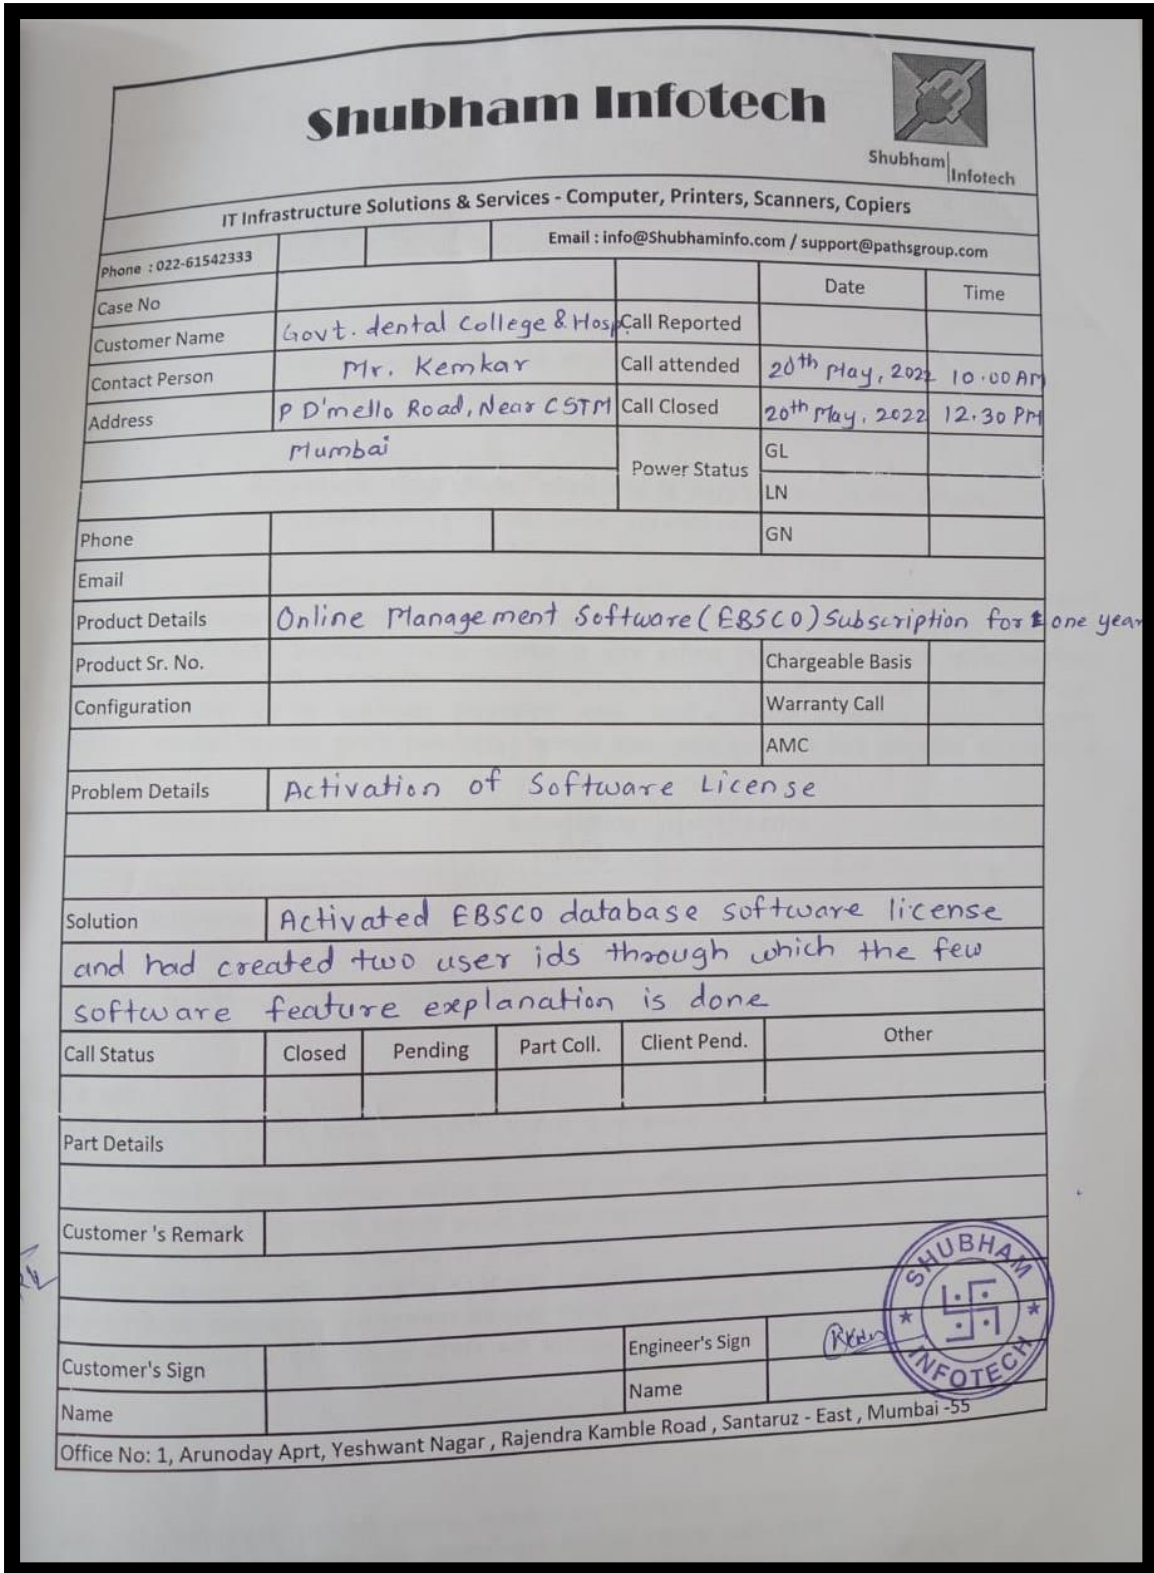 Shubham Infotech
Shubham
Infotech
IT Infrastructure Solutions & Services - Computer, Printers, Scanners, Copiers
Phone : 022-61542333 Email : info@Shubhaminfo.com / support@pathsgroup.com
Case No Date Time
Customer Name Govt. dental College & Hosp. Call Reported
Contact Person Mr. Kemkar Call attended 20th May, 2022 10.00 AM
Address P D'mello Road, Near CSTM Call Closed 20th May, 2022 12.30 PM
Mumbai
Power Status GL
LN
Phone GN
Email
Product Details Online Management Software (EBSCO) Subscription for one year
Product Sr. No. Chargeable Basis
Configuration Warranty Call
AMC
Problem Details Activation of Software License
Solution Activated EBSCO database software license
and had created two user ids through which the few
software feature explanation is done
Call Status Closed Pending Part Coll. Client Pend. Other
Part Details
Customer 's Remark
SHUBHAM
INFOTECH
Customer's Sign Engineer's Sign
Name Name
Office No: 1, Arunoday Aprt, Yeshwant Nagar , Rajendra Kamble Road , Santaruz - East , Mumbai -55